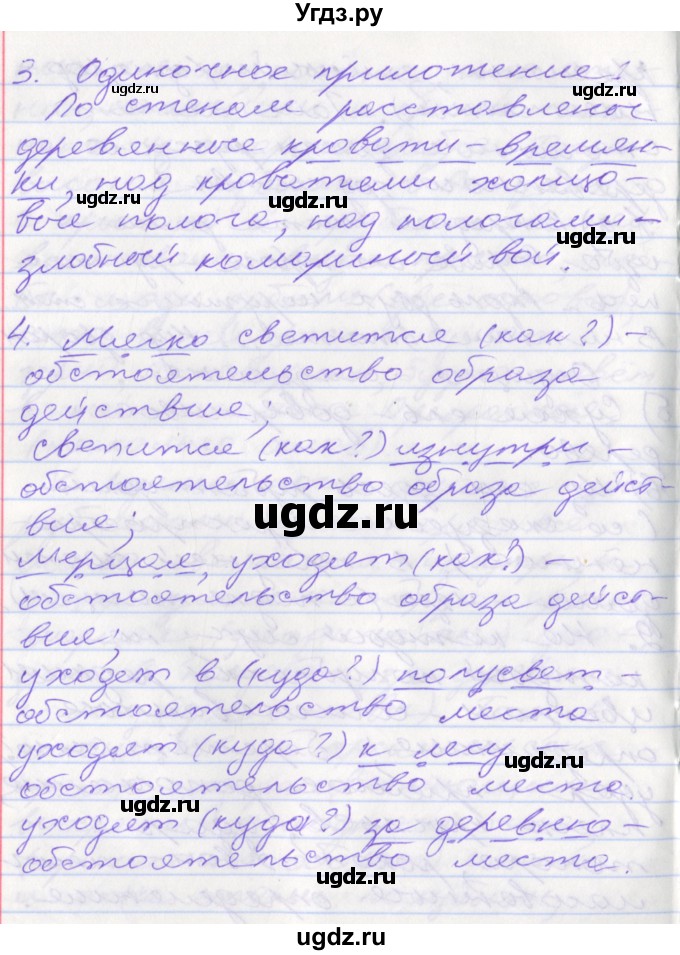 Угдз.ру
3. Одиночное приложение:
По стенам расставлены
деревянные кровати - времян-
ки, над кроватями холщо-
вые полога, над пологами -
злобный комариный вой.
4. Мягко светится (как?) -
обстоятельство образа
действия;
светится (как?) изнутри -
обстоятельство образа дейст-
вия;
мерцая, уходят (как?) -
обстоятельство образа дейст-
вия;
уходят в (куда?) полусвет -
обстоятельство места
уходят (куда?) к лесу -
обстоятельство места.
уходят (куда?) за деревню -
обстоятельство места.
ugdz.ru
ugdz.ru
ugdz.ru
ugdz.ru
ugdz.ru
ugdz.ru
ugdz.ru
ugdz.ru
ugdz.ru
ugdz.ru
ugdz.ru
ugdz.ru